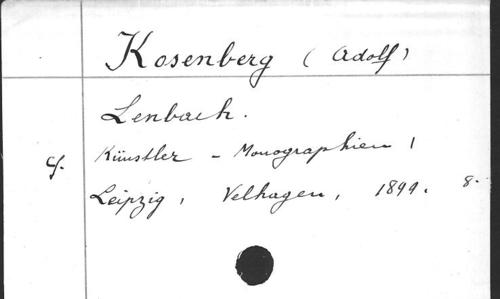 Rosenberg (Adolf)
Lenbach.
Künstler - Monographien,
Leipzig, Velhagen, 1899. 8.